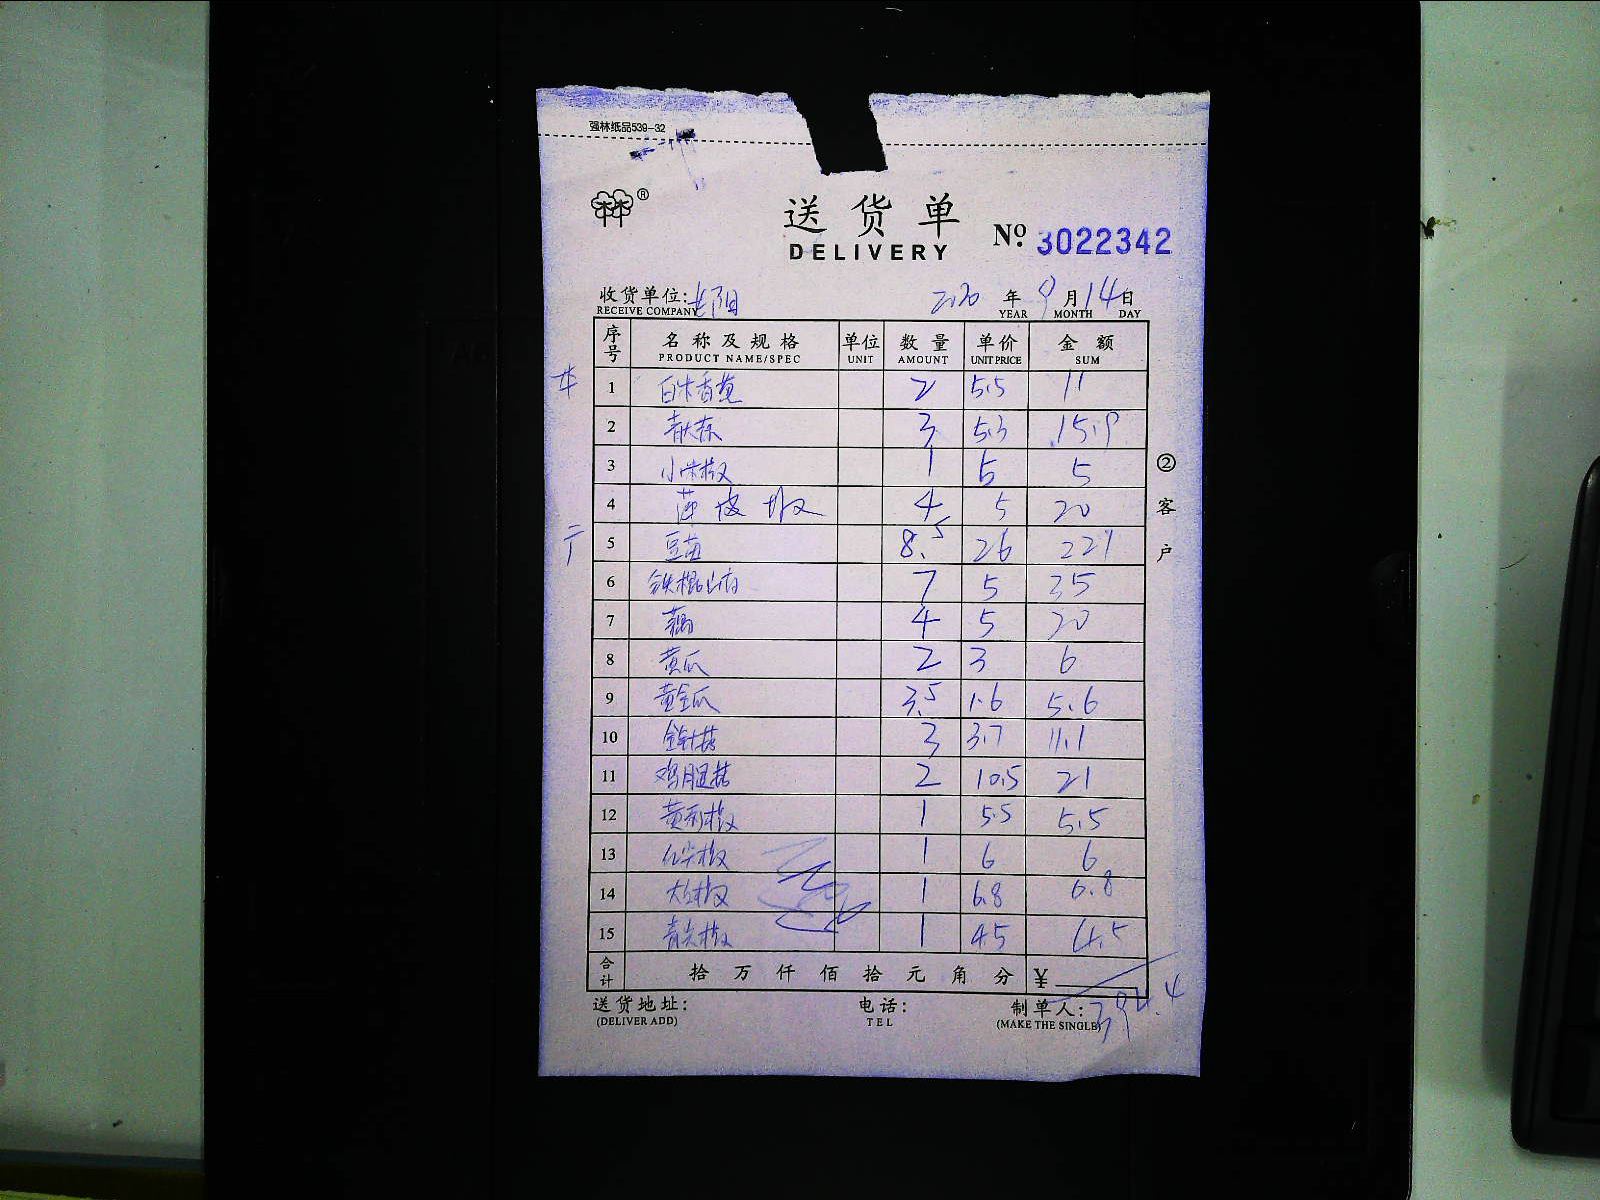 强林纸品539-32
®
送货单
DELIVERY
№ 3022342
收货单位: 岳阳 2020 年 9 月 14 日
RECEIVE COMPANY YEAR MONTH DAY
序号 名称及规格 单位 数量 单价 金额
PRODUCT NAME/SPEC UNIT AMOUNT UNIT PRICE SUM
1 2 5.5 11
2 3 5.3 15.9
3 小米椒 1 5 5
4 薄皮椒 4 5 20
5 豆苗 8.5 26 221
6 铁棍山药 7 5 35
7 藕 4 5 20
8 黄瓜 2 3 6
9 黄金瓜 3.5 1.6 5.6
10 金针菇 3 3.7 11.1
11 鸡腿菇 2 10.5 21
12 黄彩椒 1 5.5 5.5
13 红尖椒 1 6 6
14 大红椒 1 6.8 6.8
15 青尖椒 1 4.5 4.5
合计 拾 万 仟 佰 拾 元 角 分 ¥
394.4
送货地址: 电话: 制单人:
(DELIVER ADD) TEL (MAKE THE SINGLE)
②客户